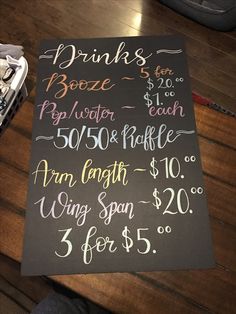 ~ Drinks ~
Booze ~ 5 for $20.00
Pop/water ~ $1.00 each
~ 50/50 & Raffle ~
Arm length ~ $10.00
Wing Span ~ $20.00
3 for $5.00